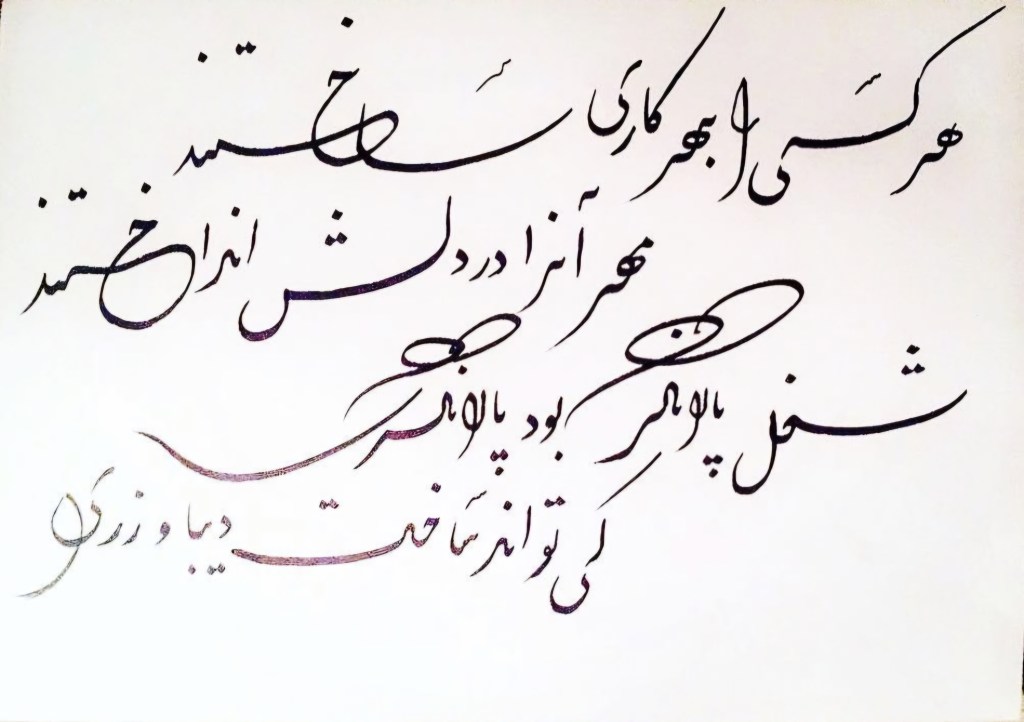 هر کسی را بهر کاری ساختند
مهر آنرا در دلش انداختند
شغل پالانگر بود پالانگری
کی تواند ساخت دیبا و زری